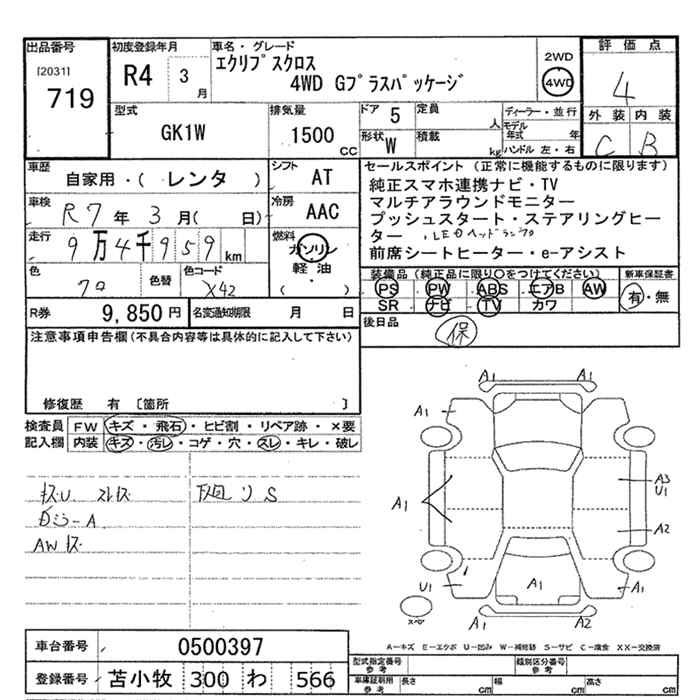 出品番号
[2031]
719
初度登録年月
R4 3 月
車名・グレード
エクリプスクロス
4WD Gプラスパッケージ
2WD
4WD
評価点
4
外装 内装
C B
型式
GK1W
排気量
1500 CC
ドア 5
形状 W
定員 人
積載 kg
ディーラー・並行
モデル年式 年
ハンドル 左・右
車歴
自家用・( レンタ )
シフト AT
車検
R7年3月( 日)
冷房 AAC
走行
9万4千959 km
燃料
ガソリン
軽油
( )
色
クロ
色替
色コード
X42
R券 9,850円
名変通知期限 月 日
セールスポイント (正常に機能するものに限ります)
純正スマホ連携ナビ・TV
マルチアラウンドモニター
プッシュスタート・ステアリングヒー
ター .LEDヘッドランプ
前席シートヒーター・e-アシスト
装備品(純正品に限り○をつけてください)
新車保証書
PS PW ABS エアB AW
SR ナビ TV カワ
有・無
後日品
保
注意事項申告欄(不具合内容等は具体的に記入して下さい)
修復歴 有 [箇所 ]
検査員記入欄
FW キズ・飛石・ヒビ割・リペア跡・×要
内装 キズ・汚レ・コゲ・穴・スレ・キレ・破レ
キズU スレキズ
下回りS
AWキズ
A1 A1
A1 A1
A1
A3
U1
A2
U1 A1 A1
A1 A2
スペア
A-キズ E-エクボ U-凹み W-補修跡 S-サビ C-腐食 XX-交換済
車台番号 0500397
登録番号 苫小牧 300 わ 566
型式指定番号 参考
類別区分番号 参考
車庫証明用 参考
長さ cm 幅 cm 高さ cm